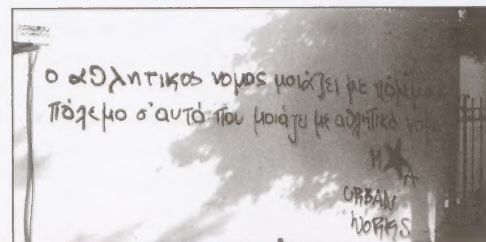 ο αθλητικος νομος μοιάζει με πόλεμο
πόλεμο σ'αυτό που μοιάζει με αθλητικό νόμο
M★A
URBAN
WORKS